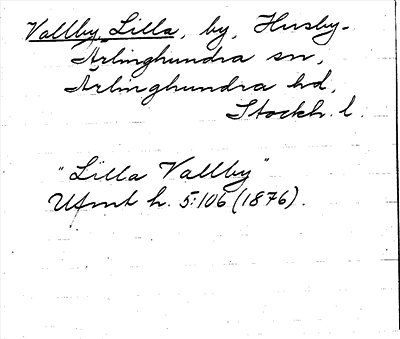 Vallby, Lilla, by, Husby-
Ärlinghundra sn,
Ärlinghundra hd,
Stockh. l.
"Lilla Vallby"
Ufmt h. 5:106 (1876).